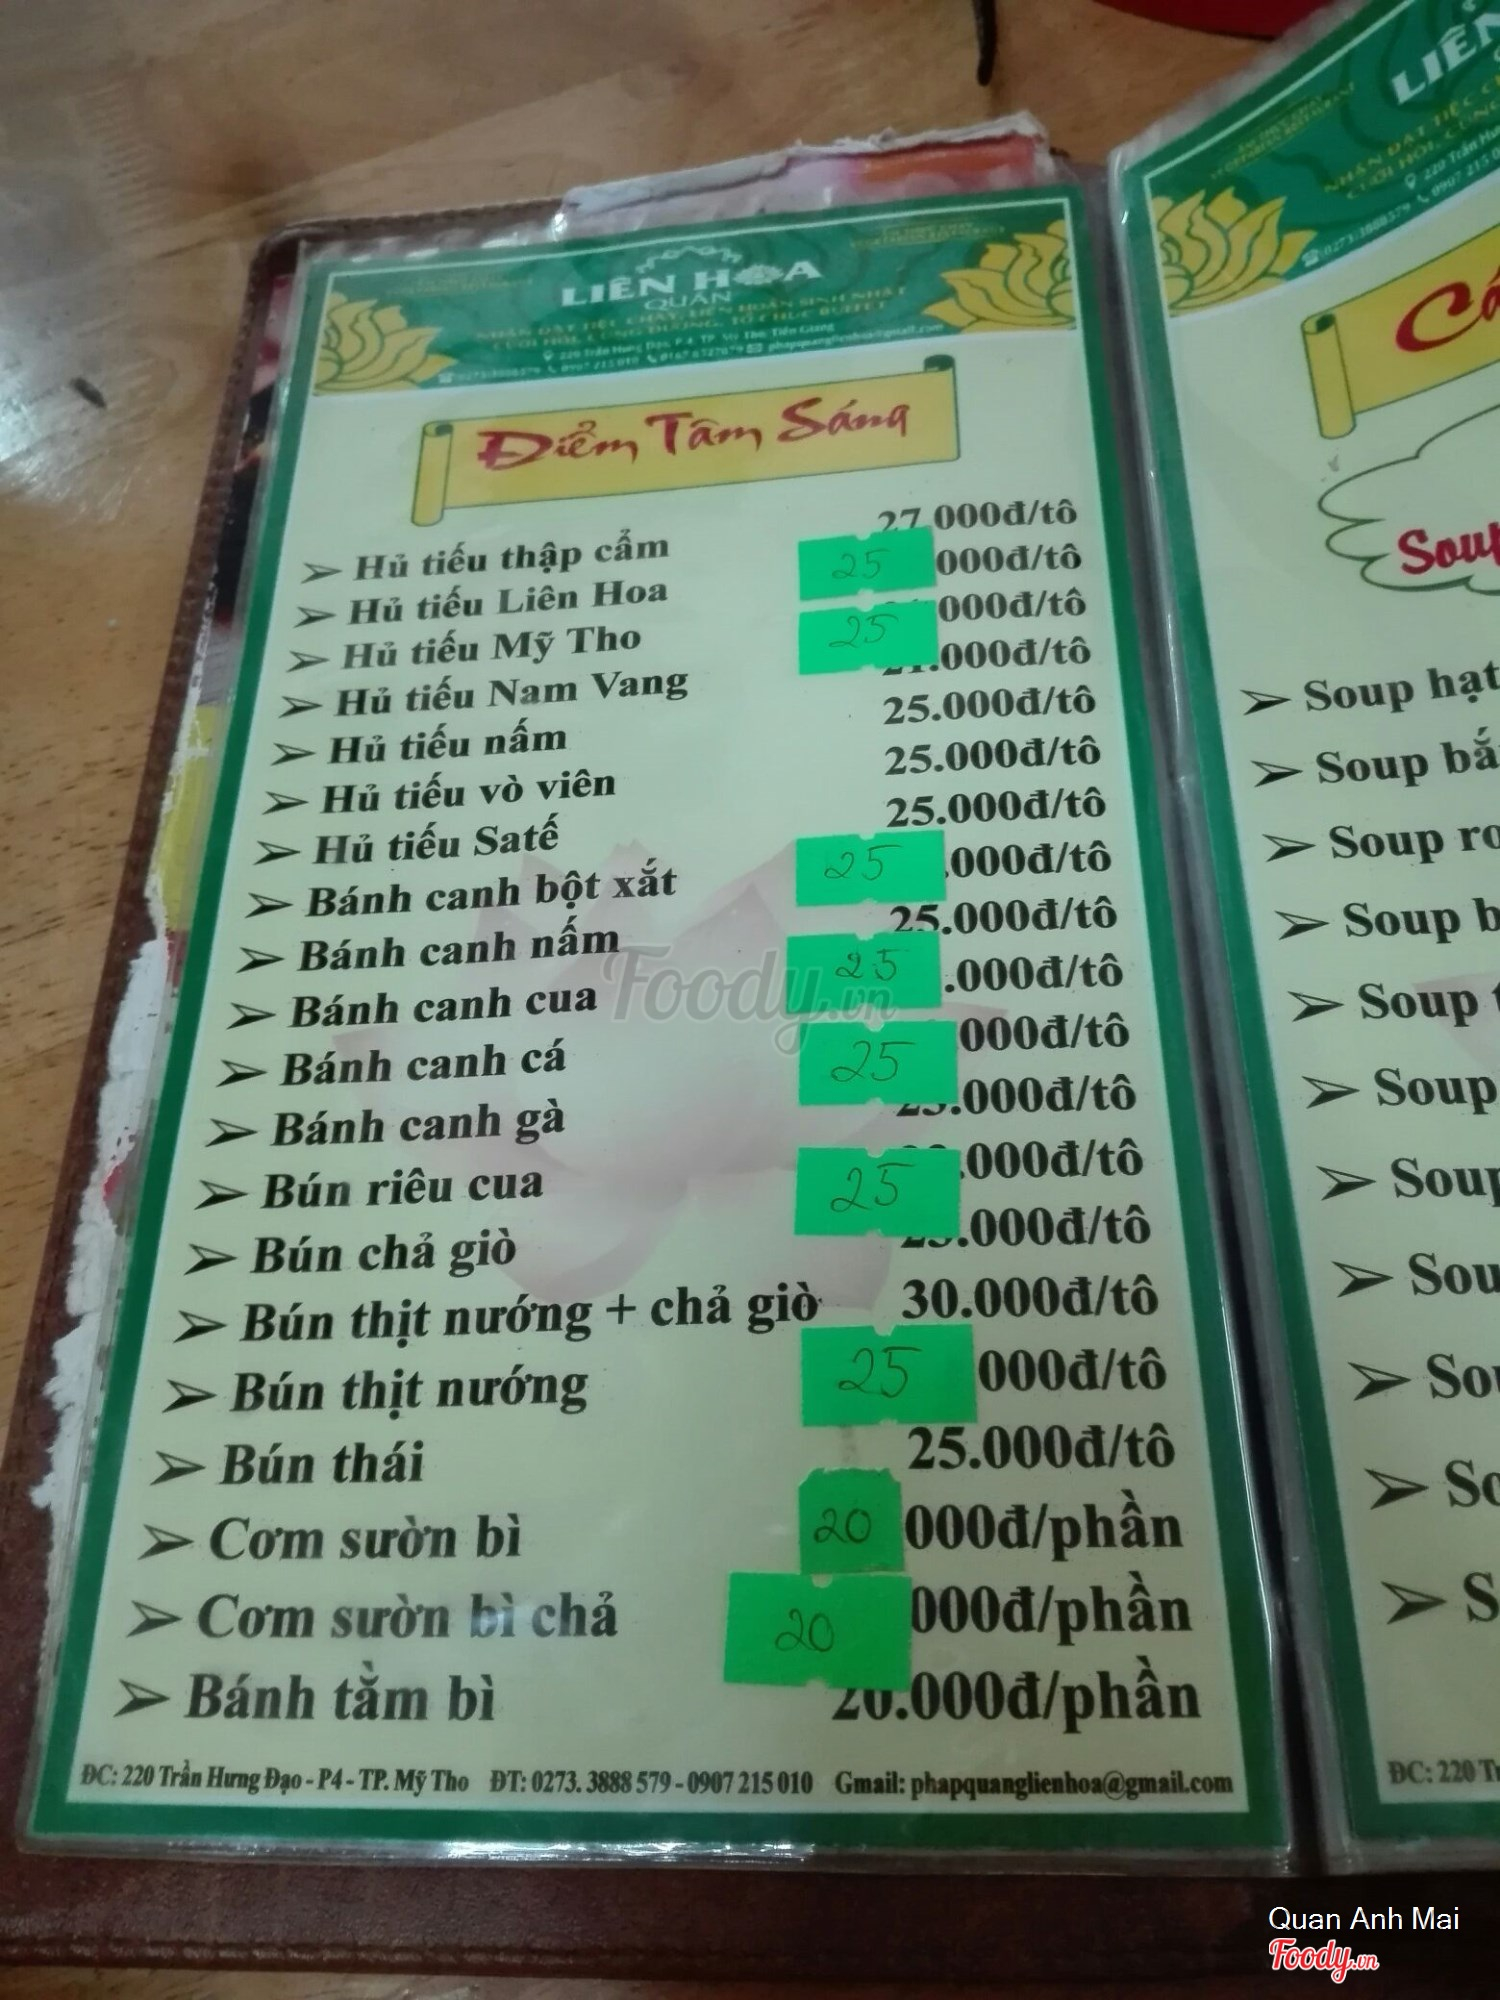 LIÊN HOA
QUÁN
NHẬN ĐẶT TIỆC CHAY, LIÊN HOAN SINH NHẬT
CƯỚI HỎI, CÚNG DƯỜNG, TỔ CHỨC BUFFET
220 Trần Hưng Đạo, P.4, TP. Mỹ Tho, Tiền Giang
phapquanglienhoa@gmail.com
Điểm Tâm Sáng
➢ Hủ tiếu thập cẩm 27.000đ/tô
➢ Hủ tiếu Liên Hoa 25 000đ/tô
➢ Hủ tiếu Mỹ Tho 25 000đ/tô
➢ Hủ tiếu Nam Vang .000đ/tô
➢ Hủ tiếu nấm 25.000đ/tô
➢ Hủ tiếu vò viên 25.000đ/tô
➢ Hủ tiếu Satế 25.000đ/tô
➢ Bánh canh bột xắt 25 .000đ/tô
➢ Bánh canh nấm 25.000đ/tô
➢ Bánh canh cua 25 .000đ/tô
➢ Bánh canh cá 25 000đ/tô
➢ Bánh canh gà .000đ/tô
➢ Bún riêu cua 25 .000đ/tô
➢ Bún chả giò .000đ/tô
➢ Bún thịt nướng + chả giò 30.000đ/tô
➢ Bún thịt nướng 25 000đ/tô
➢ Bún thái 25.000đ/tô
➢ Cơm sườn bì 20 000đ/phần
➢ Cơm sườn bì chả 20 000đ/phần
➢ Bánh tằm bì 20.000đ/phần
ĐC: 220 Trần Hưng Đạo - P4 - TP. Mỹ Tho ĐT: 0273. 3888 579 - 0907 215 010 Gmail: phapquanglienhoa@gmail.com
LIÊN
220 Trần
Soup
➢ Soup hạt
➢ Soup bắ
➢ Soup
➢ Soup
➢ Soup
➢ Soup
➢ Soup
ĐC: 220
Foody.vn
Quan Anh Mai
Foody.vn